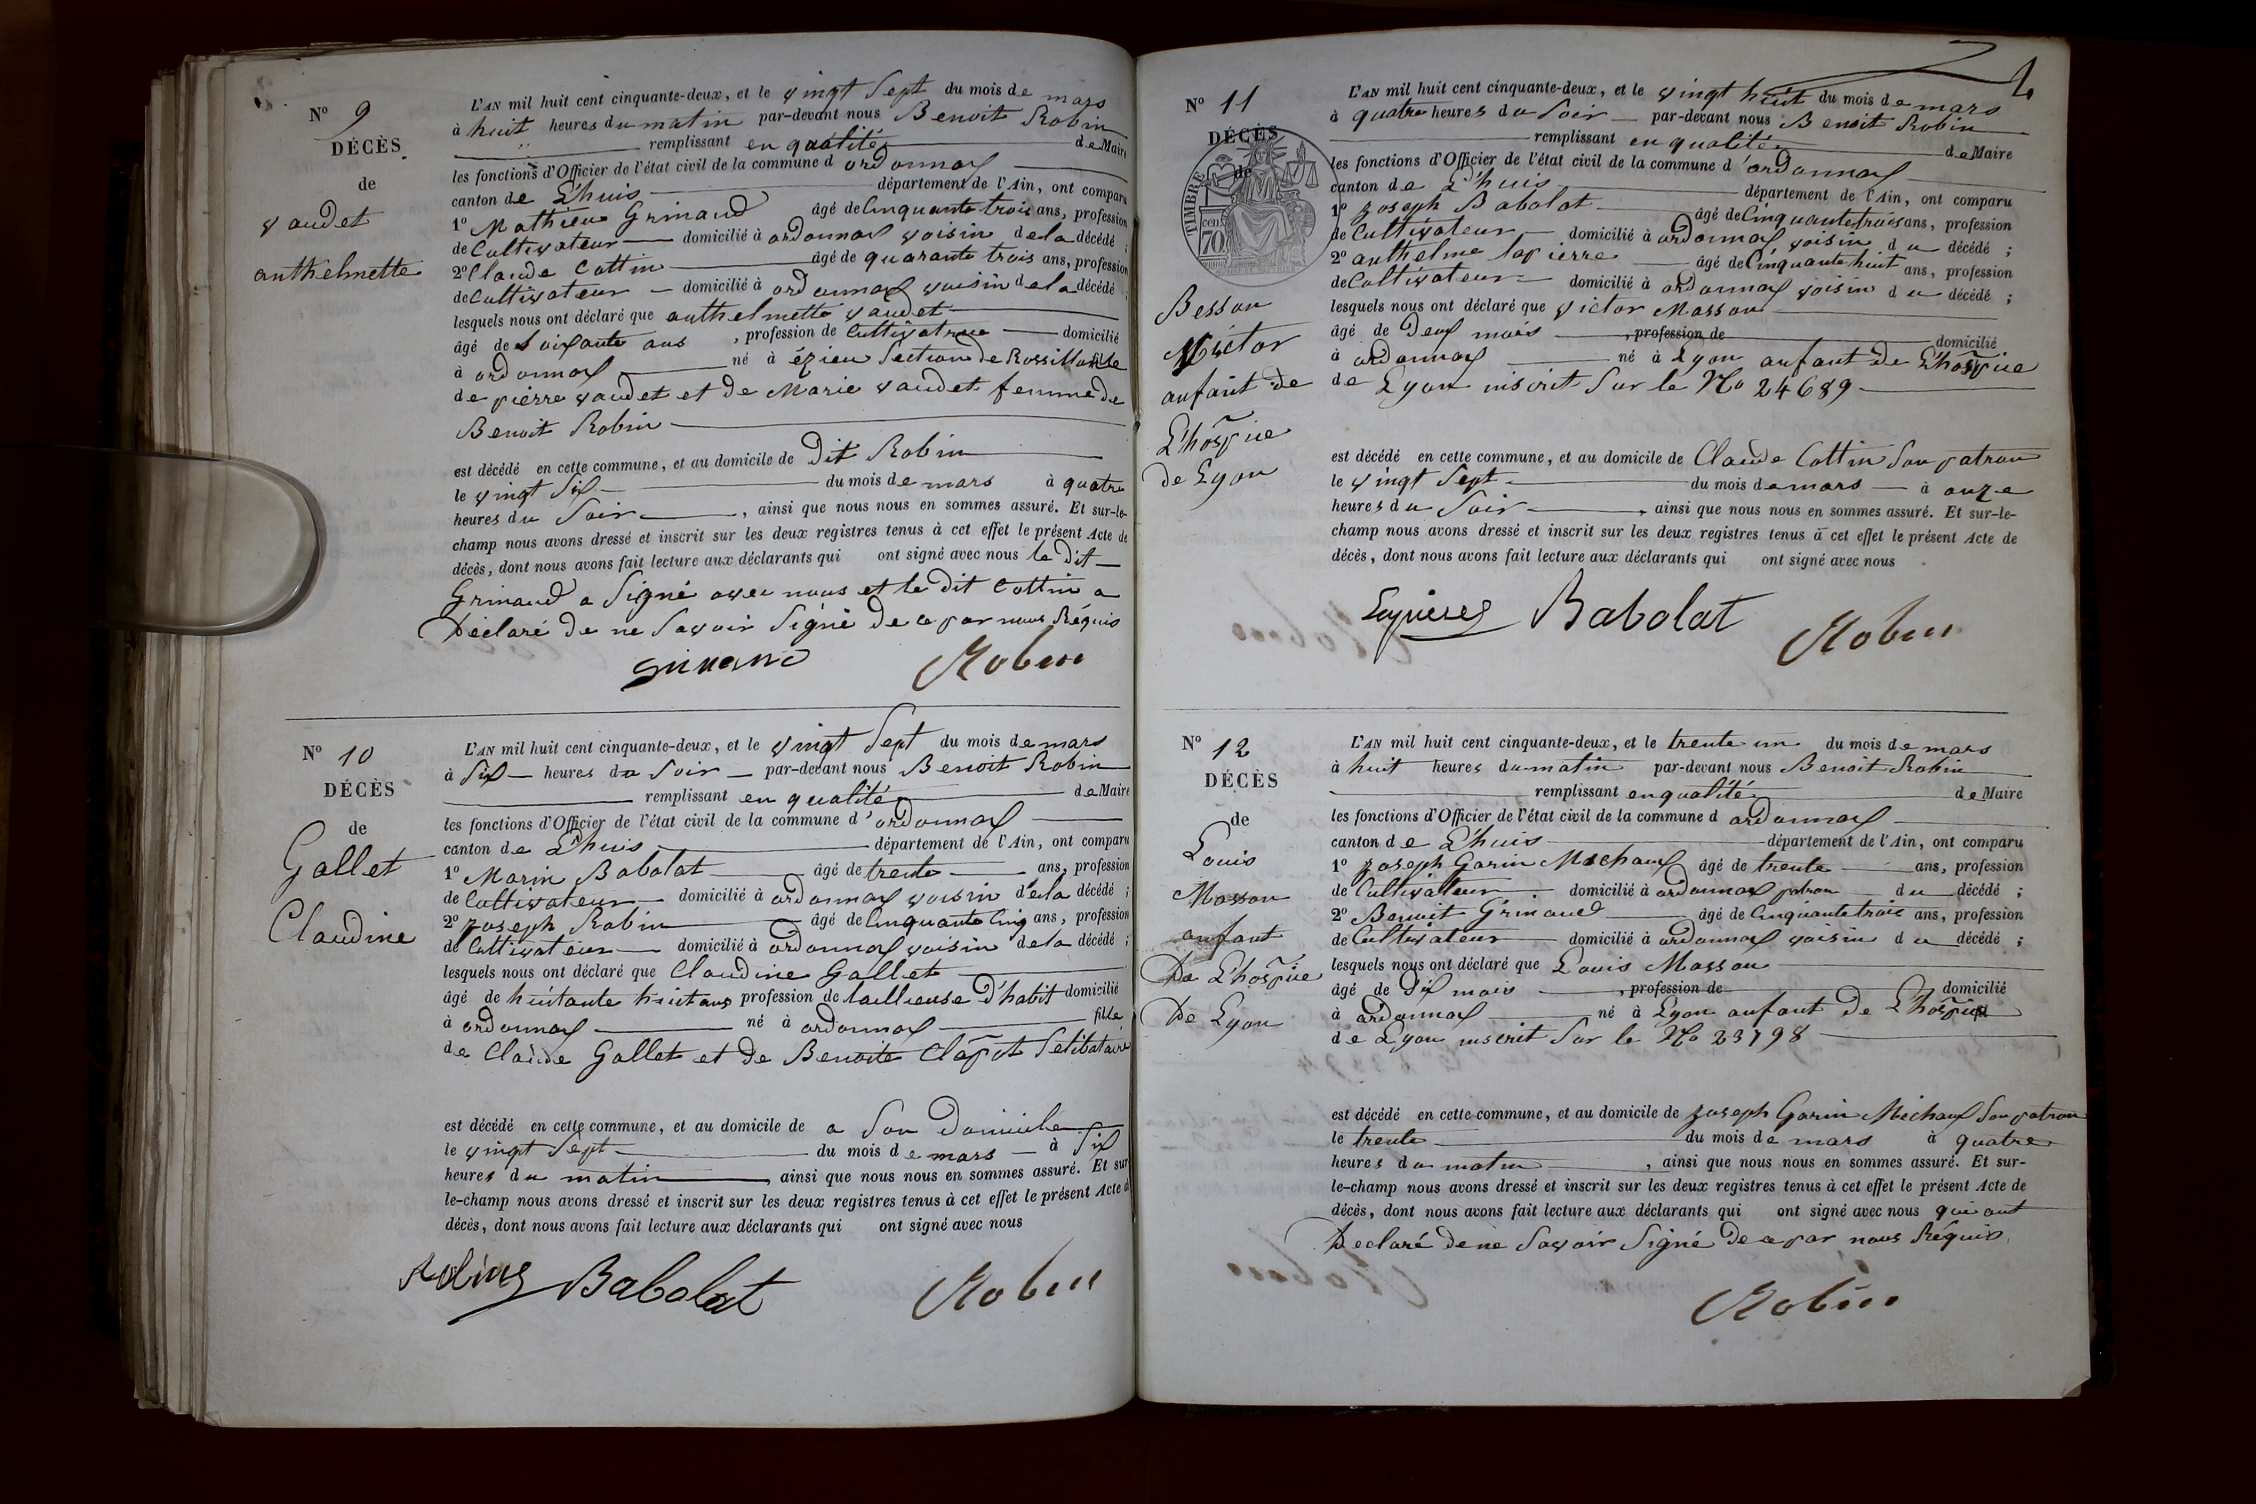 Nº 9
DÉCÈS
de
vaudet
anthelmette
L'AN mil huit cent cinquante-deux, et le vingt Sept du mois de mars
à huit heures du matin par-devant nous Benoit Robin
remplissant en qualité de Maire
les fonctions d'Officier de l'état civil de la commune d ordonnax
canton de L'huis département de l'Ain, ont comparu
1º Mathieu Grinand âgé de Cinquante trois ans, profession
de Cultivateur domicilié à ordonnax voisin de la décédé ;
2º Claude Cottin âgé de quarante trois ans, profession
de Cultivateur domicilié à ordonnax voisin de la décédé ;
lesquels nous ont déclaré que anthelmette vaudet
âgé de Soixante ans , profession de Cultivatrice domicilié
à ordonnax né à ézieu Section de Rossillon fille
de pierre vaudet et de Marie vaudet femme de
Benoit Robin
est décédé en cette commune, et au domicile de Dit Robin
le vingt Six du mois de mars à quatre
heures du Soir , ainsi que nous nous en sommes assuré. Et sur-le-
champ nous avons dressé et inscrit sur les deux registres tenus à cet effet le présent Acte de
décès, dont nous avons fait lecture aux déclarants qui ont signé avec nous le dit
Grinand a Signé avec nous et le Dit Cottin a
Déclaré de ne Savoir Signé de ce par nous Réquis
Grinand Robin
Nº 10
DÉCÈS
de
Gallet
Claudine
L'AN mil huit cent cinquante-deux, et le vingt Sept du mois de mars
à Six heures du Soir par-devant nous Benoit Robin
remplissant en qualité de Maire
les fonctions d'Officier de l'état civil de la commune d'ordonnax
canton de L'huis département de l'Ain, ont comparu
1º Marin Babolat âgé de trente ans, profession
de Cultivateur domicilié à ordonnax voisin de la décédé ;
2º Joseph Robin âgé de Cinquante Cinq ans, profession
de Cultivateur domicilié à ordonnax voisin de la décédé ;
lesquels nous ont déclaré que Claudine Gallet
âgé de huitante huit ans profession de taillieuse D'habit domicilié
à ordonnax né à ordonnax fille
de Claude Gallet et de Benoite Clapot Selibataire
est décédé en cette commune, et au domicile de a Son Domicile
le vingt Sept du mois de mars à Six
heures du matin , ainsi que nous nous en sommes assuré. Et sur
le-champ nous avons dressé et inscrit sur les deux registres tenus à cet effet le présent Acte de
décès, dont nous avons fait lecture aux déclarants qui ont signé avec nous
Robin Babolat Robin
Nº 11
DÉCÈS
de
TIMBRE
70
Besson
Victor
anfant de
L'hospice
de Lyon
L'AN mil huit cent cinquante-deux, et le vingt huit du mois de mars
à quatre heures du Soir par-devant nous Benoit Robin
remplissant en qualité de Maire
les fonctions d'Officier de l'état civil de la commune d'ordonnax
canton de L'huis département de l'Ain, ont comparu
1º Joseph Babolat âgé de Cinquante trois ans, profession
de Cultivateur domicilié à ordonnax voisin du décédé ;
2º anthelme lapierre âgé de Cinquante huit ans, profession
de Cultivateur domicilié à ordonnax voisin du décédé ;
lesquels nous ont déclaré que victor Masson
âgé de Deux mois , profession de domicilié
à ordonnax né à Lyon anfant de L'hospice
de Lyon inscrit Sur le No 24689
est décédé en cette commune, et au domicile de Claude Cottin Son patron
le vingt Sept du mois de mars à onze
heures du Soir , ainsi que nous nous en sommes assuré. Et sur-le-
champ nous avons dressé et inscrit sur les deux registres tenus à cet effet le présent Acte de
décès, dont nous avons fait lecture aux déclarants qui ont signé avec nous
Babolat Robin
Nº 12
DÉCÈS
de
Louis
Masson
anfant
De L'hospice
De Lyon
L'AN mil huit cent cinquante-deux, et le trente un du mois de mars
à huit heures du matin par-devant nous Benoit Robin
remplissant en qualité de Maire
les fonctions d'Officier de l'état civil de la commune d ordonnax
canton de L'huis département de l'Ain, ont comparu
1º Joseph Garin Michaux âgé de trente ans, profession
de Cultivateur domicilié à ordonnax patron du décédé ;
2º Benoit Grinand âgé de Cinquante trois ans, profession
de Cultivateur domicilié à ordonnax voisin du décédé ;
lesquels nous ont déclaré que Louis Masson
âgé de Dix mois , profession de domicilié
à ordonnax né à Lyon anfant de L'hospice
de Lyon inscrit Sur le No 23798
est décédé en cette commune, et au domicile de Joseph Garin Michaux Son patron
le trente du mois de mars à quatre
heures du matin , ainsi que nous nous en sommes assuré. Et sur-
le-champ nous avons dressé et inscrit sur les deux registres tenus à cet effet le présent Acte de
décès, dont nous avons fait lecture aux déclarants qui ont signé avec nous qui ont
Declaré de ne Savoir Signé De ce par nous Réquis
Robin